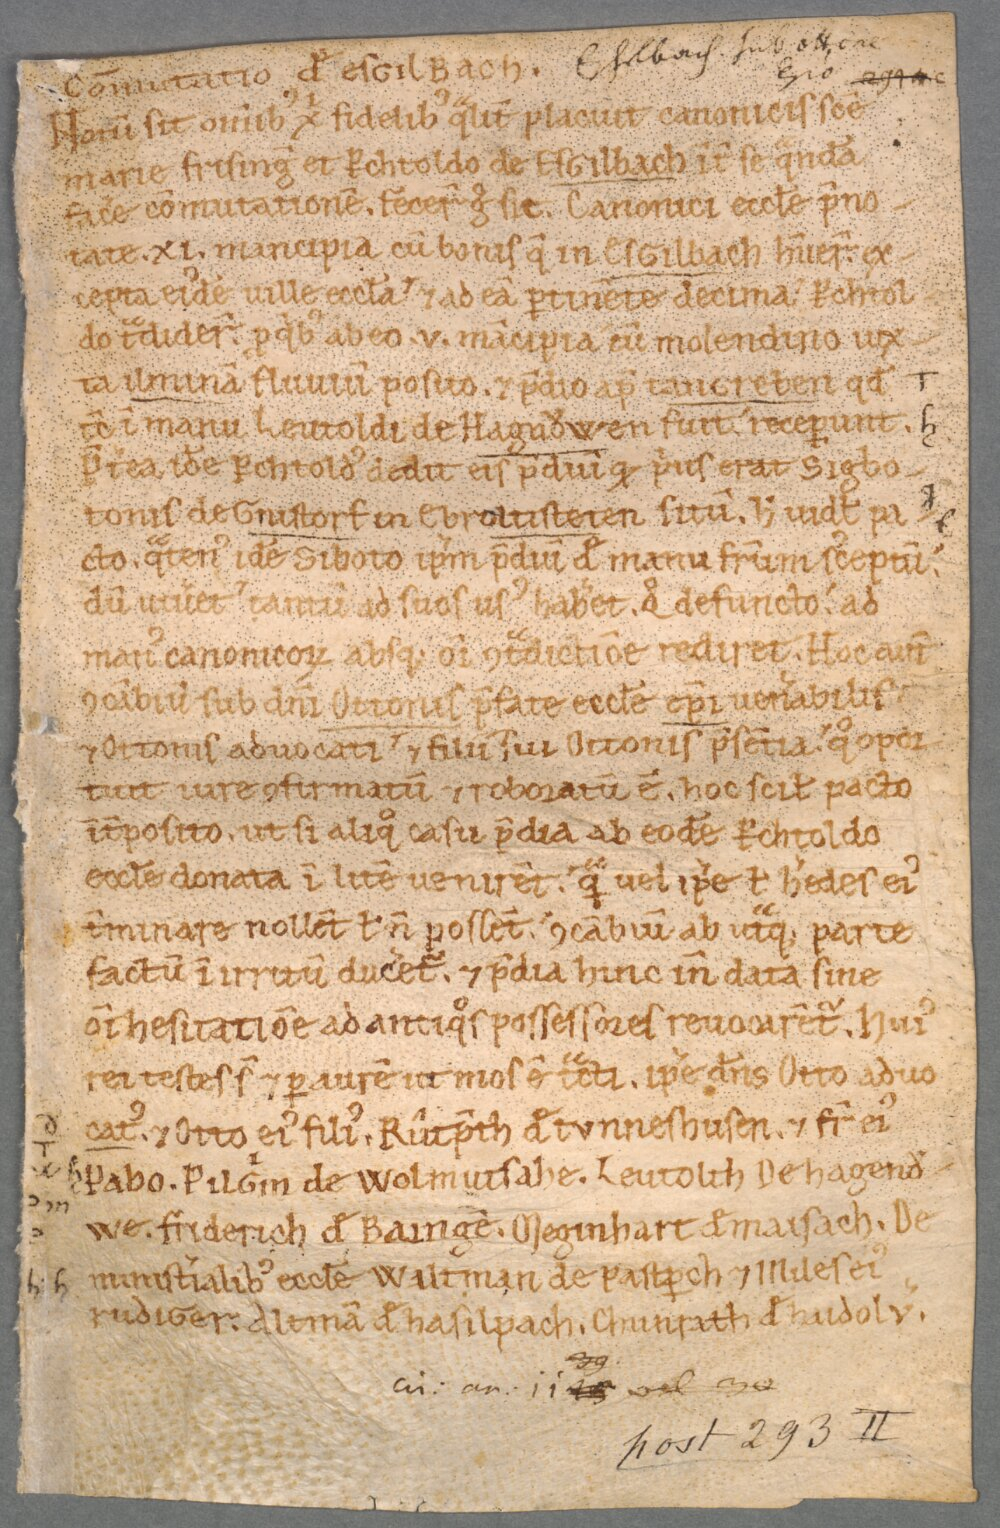 Cōmutatio d̄ esgilbach. Eselbach. sub ottone
Epo
Notū sit omnib᷒ xp̄i fidelib᷒ qͣlit̄ placuit canonicis sc̄e
marie frisinḡ et Pchtoldo de Esgilbach īt̄ se qͣndā
fac̄e cōmutationē. fecer̄ g̊ sic. Canonici eccłe p̄no-
tate. xi. mancipia cū bonis q̄ in Esgilbach hūer̄. ex-
cepta eid̄e ville eccła ⁊ ad eā ptinēte decima. Pchtol-
do tͣdider̄. p qͥb᷒ ab eo. v. mācipia cū molendino iux-
ta ilminā fluuiū posito. ⁊ p̄dio ap̄ tancreben qd̄ T
tc̄ ī manu Leutoldi de Hagnd̊wen fuit. receperunt. h
Pͥea id̄e Pchtold᷒ dedit eis p̄diūi qͥ pͥus erat Sigbo-
tonis de Gnistorf in Ebroltisteten sitū. h̄ uidł pa-
cto. qͣten᷒ idē Siboto ipm̄ p̄diū d̄ manu frūm sc̄eptū.
dū uiuet tantū ad suos us᷒ hab̄et. q̊ defuncto. ad
man᷒ canonicoꝝ absq; oī ꝯtͣdictiōe rediret. Hoc aut̄
ꝯcābiū sub dn̄i Ottonis p̄fate eccłe ep̄i uen̄abilis
⁊ Ottonis aduocati ⁊ filii sui Ottonis p̄sētia. q̊ opor-
tuit iure ꝯfirmatū ⁊ roboratū ē. hoc scił pacto
īt̄posito. ut si aliq̊ casu p̄dia ab eod̄e Pchtoldo
eccłe donata ī litē uenirēt. qͣ vel ip̄e ł h̄edes ei᷒
t̄minare nollēt ł n̄ possēt. ꝯcābiū ab utͣq; parte
factū ī irritū duc̄et᷑. ⁊ p̄dia hinc in̄ data sine
oī hesitatiōe ad antiq̊s possessores reuocarēt᷑. Hui᷒
rei testes s̄ ⁊ p aurē ut mos ē tͣcti. ip̄e dn̄s Otto aduo-
cat᷒. ⁊ Otto ei᷒ fili᷒. Rūtp̄th d̄ tvnneshusen. ⁊ fr̄ ei᷒
Pabo. Pilgͥm de Wolmutsahe. Leutolth De hagend̊-
we. friderich d̄ Bainge. Meginhart d̄ maisach. De
minist̄ialib᷒ eccłe Waltman de Pastpch ⁊ miles ei᷒
rudiger. Altmā d̄ hasilpach. Chunrath d̄ huidolv̄.
post 293 II